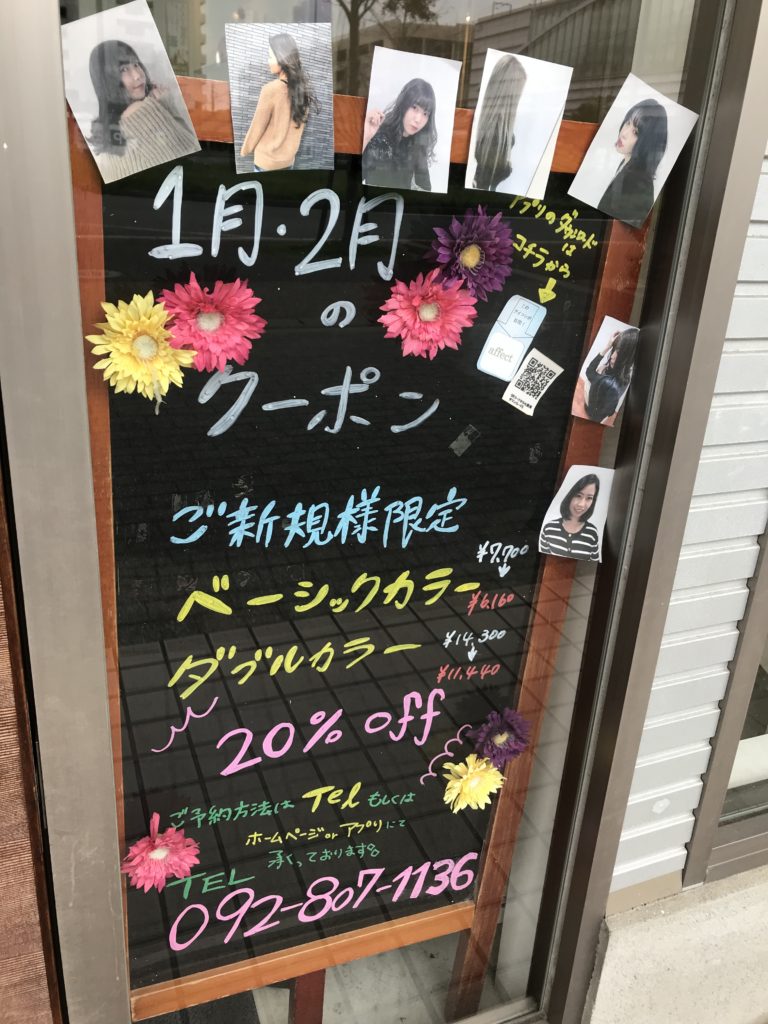 1月・2月
の
クーポン
アプリのダウンロード
は
コチラから
affect
ご新規様限定
¥7,700
ベーシックカラー
¥6,160
¥14,300
ダブルカラー
¥11,440
20% off
ご予約方法は Tel もしくは
ホームページor アプリにて
承っております。
TEL
092-807-1136